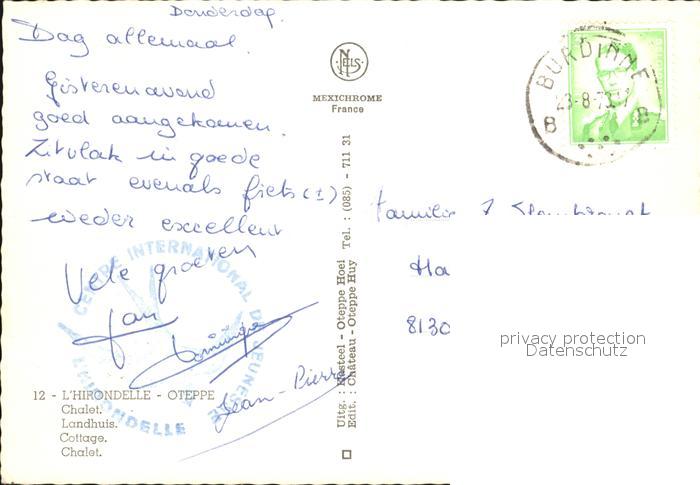 Donderdag.
Dag allemaal.
Gisterenavond
goed aangekomen.
Zitvlak in goede
staat evenals fiets (±)
weder excellent
Vele groeten
Jan
Dominique
Jean-Pierre
CENTRE INTERNATIONAL DE JEUNESSE
L'HIRONDELLE
12 - L'HIRONDELLE - OTEPPE
Chalet.
Landhuis.
Cottage.
Chalet.
NELS
MEXICHROME
France
Uitg. : Kasteel - Oteppe Hoei
Edit. : Château - Oteppe Huy Tel. : (085) - 711 31
BURDINNE
23-8-73
B B
familie
Ha
8130
privacy protection
Datenschutz